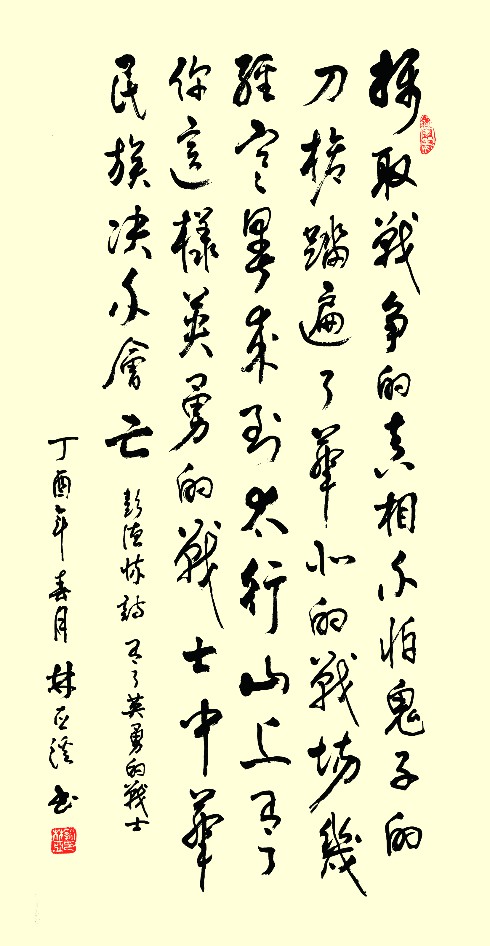 攝取戰争的真相不怕鬼子的
刀枪踏遍了華北的戰場幾
經寒暑来到太行山上有了
你這樣英勇的戰士中華
民族决不會亡
彭德怀詩 有了英勇的戰士
丁酉年春月 林 书